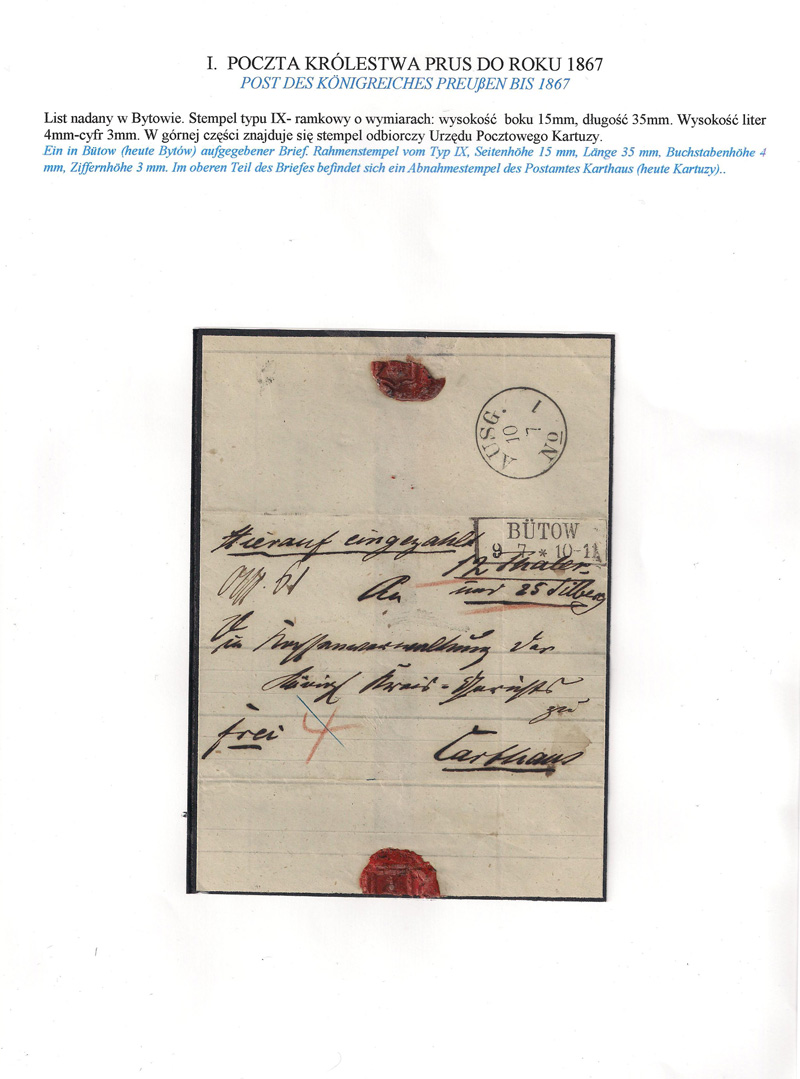 I. POCZTA KRÓLESTWA PRUS DO ROKU 1867
POST DES KÖNIGREICHES PREUßEN BIS 1867
List nadany w Bytowie. Stempel typu IX- ramkowy o wymiarach: wysokość boku 15mm, długość 35mm. Wysokość liter
4mm-cyfr 3mm. W górnej części znajduje się stempel odbiorczy Urzędu Pocztowego Kartuzy.
Ein in Bütow (heute Bytów) aufgegebener Brief. Rahmenstempel vom Typ IX, Seitenhöhe 15 mm, Länge 35 mm, Buchstabenhöhe 4
mm, Ziffernhöhe 3 mm. Im oberen Teil des Briefes befindet sich ein Abnahmestempel des Postamtes Karthaus (heute Kartuzy)..
AUSG. No 1
10 7
BÜTOW
9 7 * 10-11
Hierauf eingezahlt
12 Thaler
und 25 Silberg
An
der
Königl Kreis-Gerichts
zu
frei 4
Carthaus